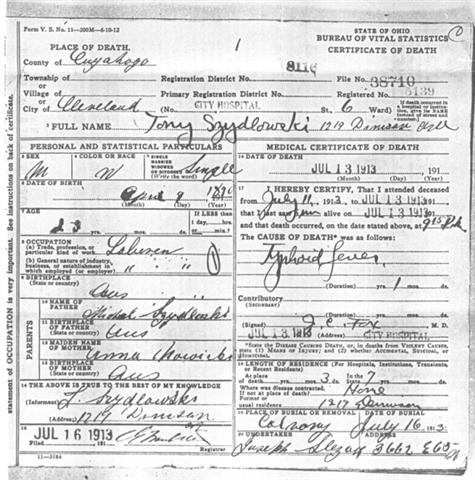 Form V. S. No. 11—200M—6-10-12
STATE OF OHIO
BUREAU OF VITAL STATISTICS
CERTIFICATE OF DEATH
1
PLACE OF DEATH.
County of Cuyahoga
8116
Township of
Registration District No.
File No. 38710
or
Village of
Primary Registration District No.
Registered No.
or
City of Cleveland (No. CITY HOSPITAL St. 6 Ward)
FULL NAME Tony Szydlowski 1219 Denison
PERSONAL AND STATISTICAL PARTICULARS
MEDICAL CERTIFICATE OF DEATH
SEX
M
COLOR OR RACE
W
SINGLE
MARRIED
WIDOWED
OR DIVORCED
(Write the word)
Single
DATE OF DEATH
JUL 13 1913 191
(Month) (Day) (Year)
DATE OF BIRTH
(Month) (Day) (Year)
AGE
23 yrs. mos. ds.
IF LESS than
1 day, hrs.
or min.
I HEREBY CERTIFY, That I attended deceased
from July 11, 1913, to JUL 13 1913 191
that I last saw him alive on JUL 13 1913 191
and that death occurred, on the date stated above, at
The CAUSE OF DEATH* was as follows:
Typhoid fever
(Duration) yrs. 1 mos. ds.
Contributory
(Secondary)
(Duration) yrs. mos. ds.
OCCUPATION
(a) Trade, profession, or
particular kind of work
Laborer
(b) General nature of industry,
business, or establishment in
which employed (or employer)
BIRTHPLACE
(State or country)
Aus
PARENTS
NAME OF
FATHER
Szydlowski
BIRTHPLACE
OF FATHER
(State or country)
Aus
MAIDEN NAME
OF MOTHER
Anna
BIRTHPLACE
OF MOTHER
(State or country)
Aus
(Signed) J. C. Fox M. D.
JUL 13 1913 (Address) CITY HOSPITAL
*State the DISEASE CAUSING DEATH, or, in deaths from VIOLENT CAUSES, state (1) MEANS OF INJURY; and (2) whether ACCIDENTAL, SUICIDAL, or HOMICIDAL.
LENGTH OF RESIDENCE (For Hospitals, Institutions, Transients, or Recent Residents)
At place
of death yrs. mos. 3 ds.
In the
State 7 yrs. mos. ds.
Where was disease contracted,
if not at place of death? Home
Former or
usual residence 1219 Denison
THE ABOVE IS TRUE TO THE BEST OF MY KNOWLEDGE
(Informant) Szydlowski
(Address) 1219 Denison
PLACE OF BURIAL OR REMOVAL
Calvary
DATE OF BURIAL
July 16 1913
Filed JUL 16 1913
UNDERTAKER
Joseph Slezak 3662 E 65
11—3184
statement of OCCUPATION is very important. See instructions on back of certificate.